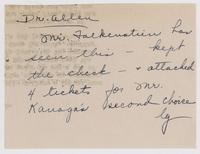 Dr. Allen
Mr. Falkenstein has
seen this - kept
the check - & attached
4 tickets for Mr.
Kanaga's second choice
lg